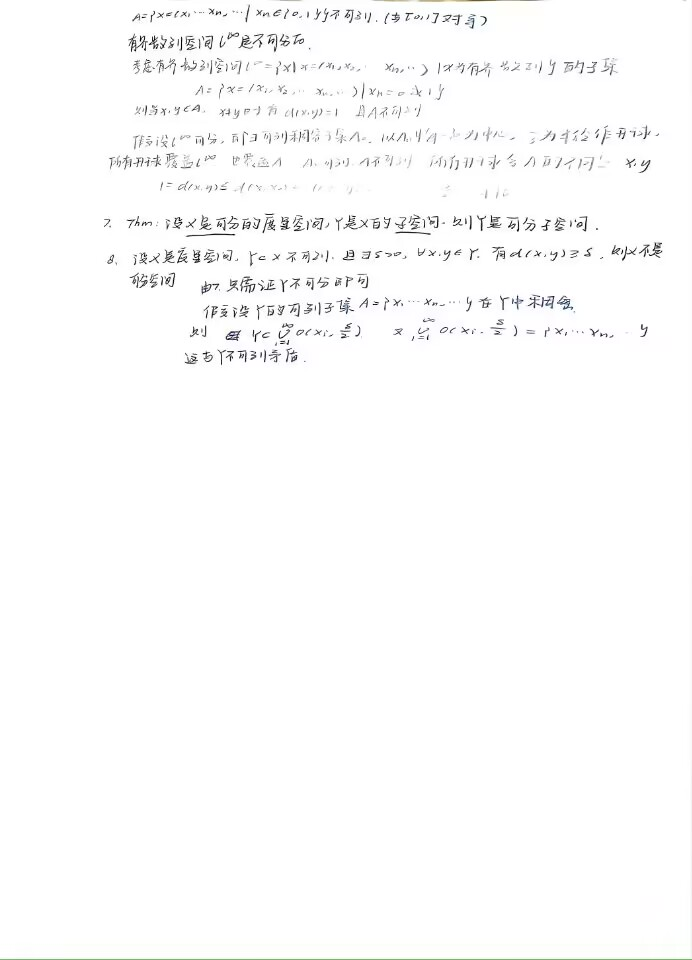 A={x=(x₁…xₙ,…)| xₙ∈{0,1}}不可列. (与[0,1]对等)
有界数列空间 l^∞ 是不可分的.
考虑有界数列空间 l^∞={x|x=(x₁,x₂,… xₙ,…) |x为有界数列} 的子集
A={x=(x₁,x₂,… xₙ,…)|xₙ=0或1}
则当x,y∈A, x≠y时有 d(x,y)=1 且A不可列
假设 l^∞可分, 即∃可列稠密子集A₀. 以A₀中 为中心, 为半径作开球,
所有开球覆盖 l^∞ 也覆盖A A₀可列, A不可列 x,y
1=d(x,y)≤
7. Thm: 设X是可分的度量空间, Y是X的子空间. 则Y是可分子空间.
8. 设X是度量空间, Y⊂X不可列. 且∃δ>0, ∀x,y∈Y. 有d(x,y)≥δ, 则X不是
可分空间 由7. 只需证Y不可分即可
假设Y的可列子集 A={x₁…xₙ,…} 在Y中稠密
则 Y⊂ ∞∪i=1 O(xᵢ, δ/2) 又 ∞∪i=1 O(xᵢ, δ/2) = {x₁…xₙ,…}
这与Y不可列矛盾.